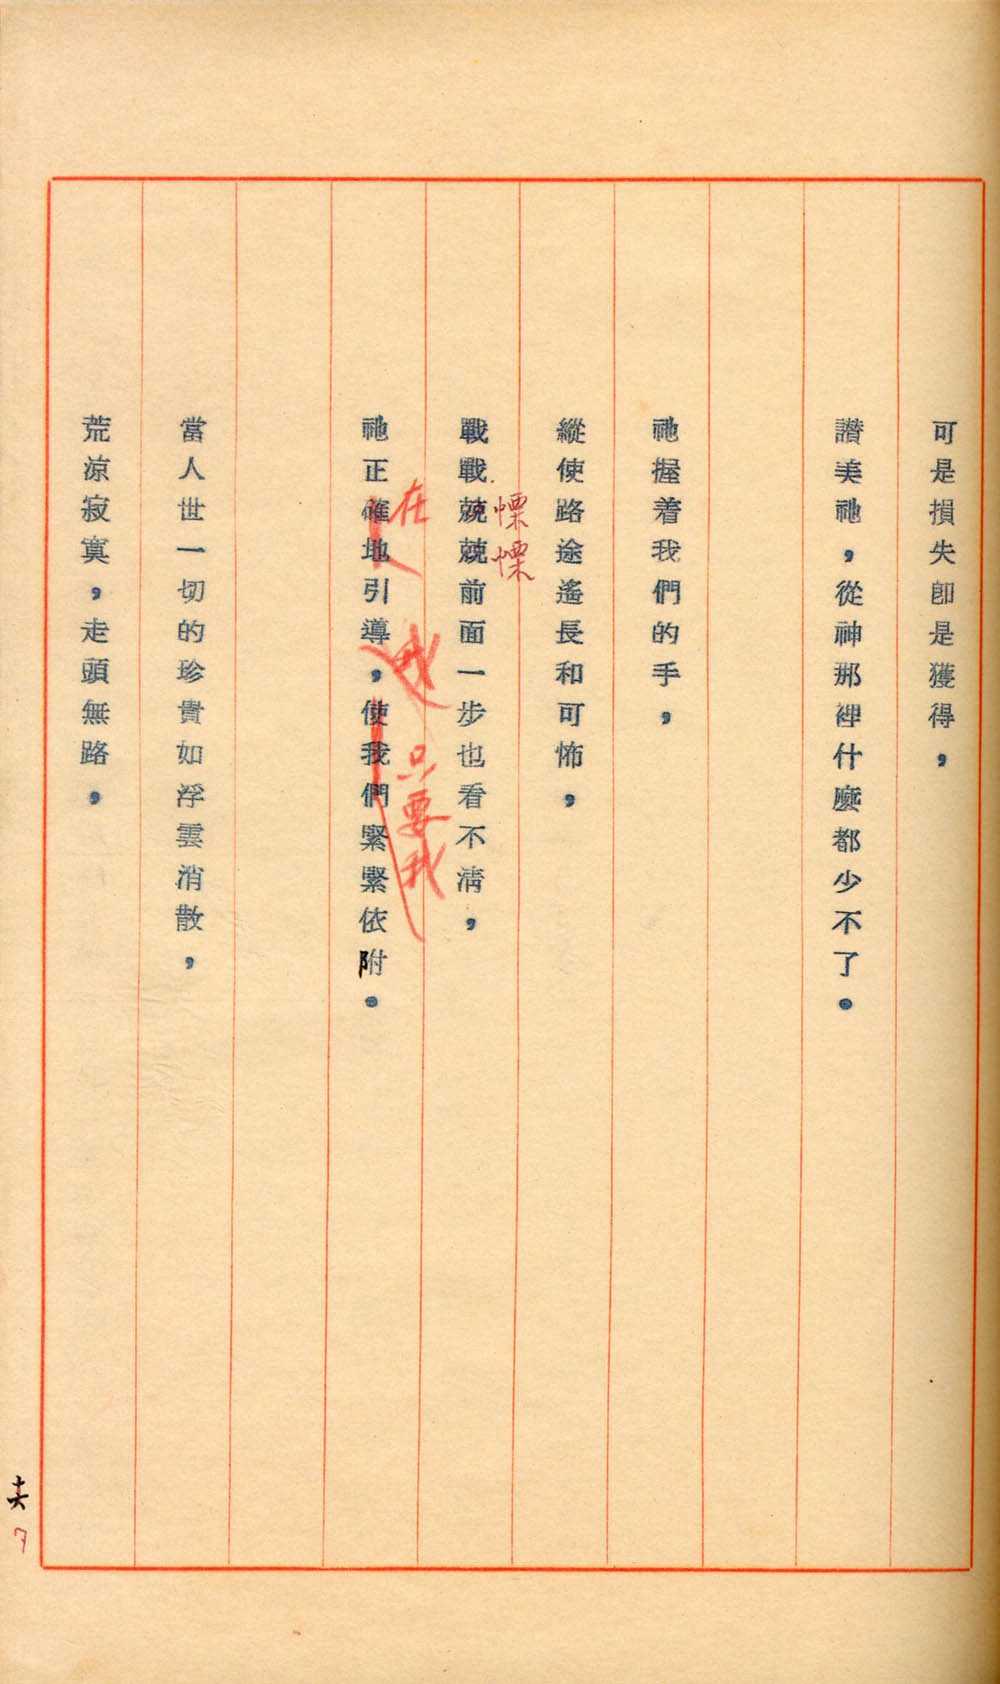 可是損失卽是獲得，
讃美祂，從神那裡什麼都少不了。
祂握着我們的手，
縱使路途遙長和可怖，
慄慄
戰戰兢兢前面一步也看不淸，
在
只要我
祂正確地引導，使我們緊緊依附。
當人世一切的珍貴如浮雲消散，
荒涼寂寞，走頭無路，
7